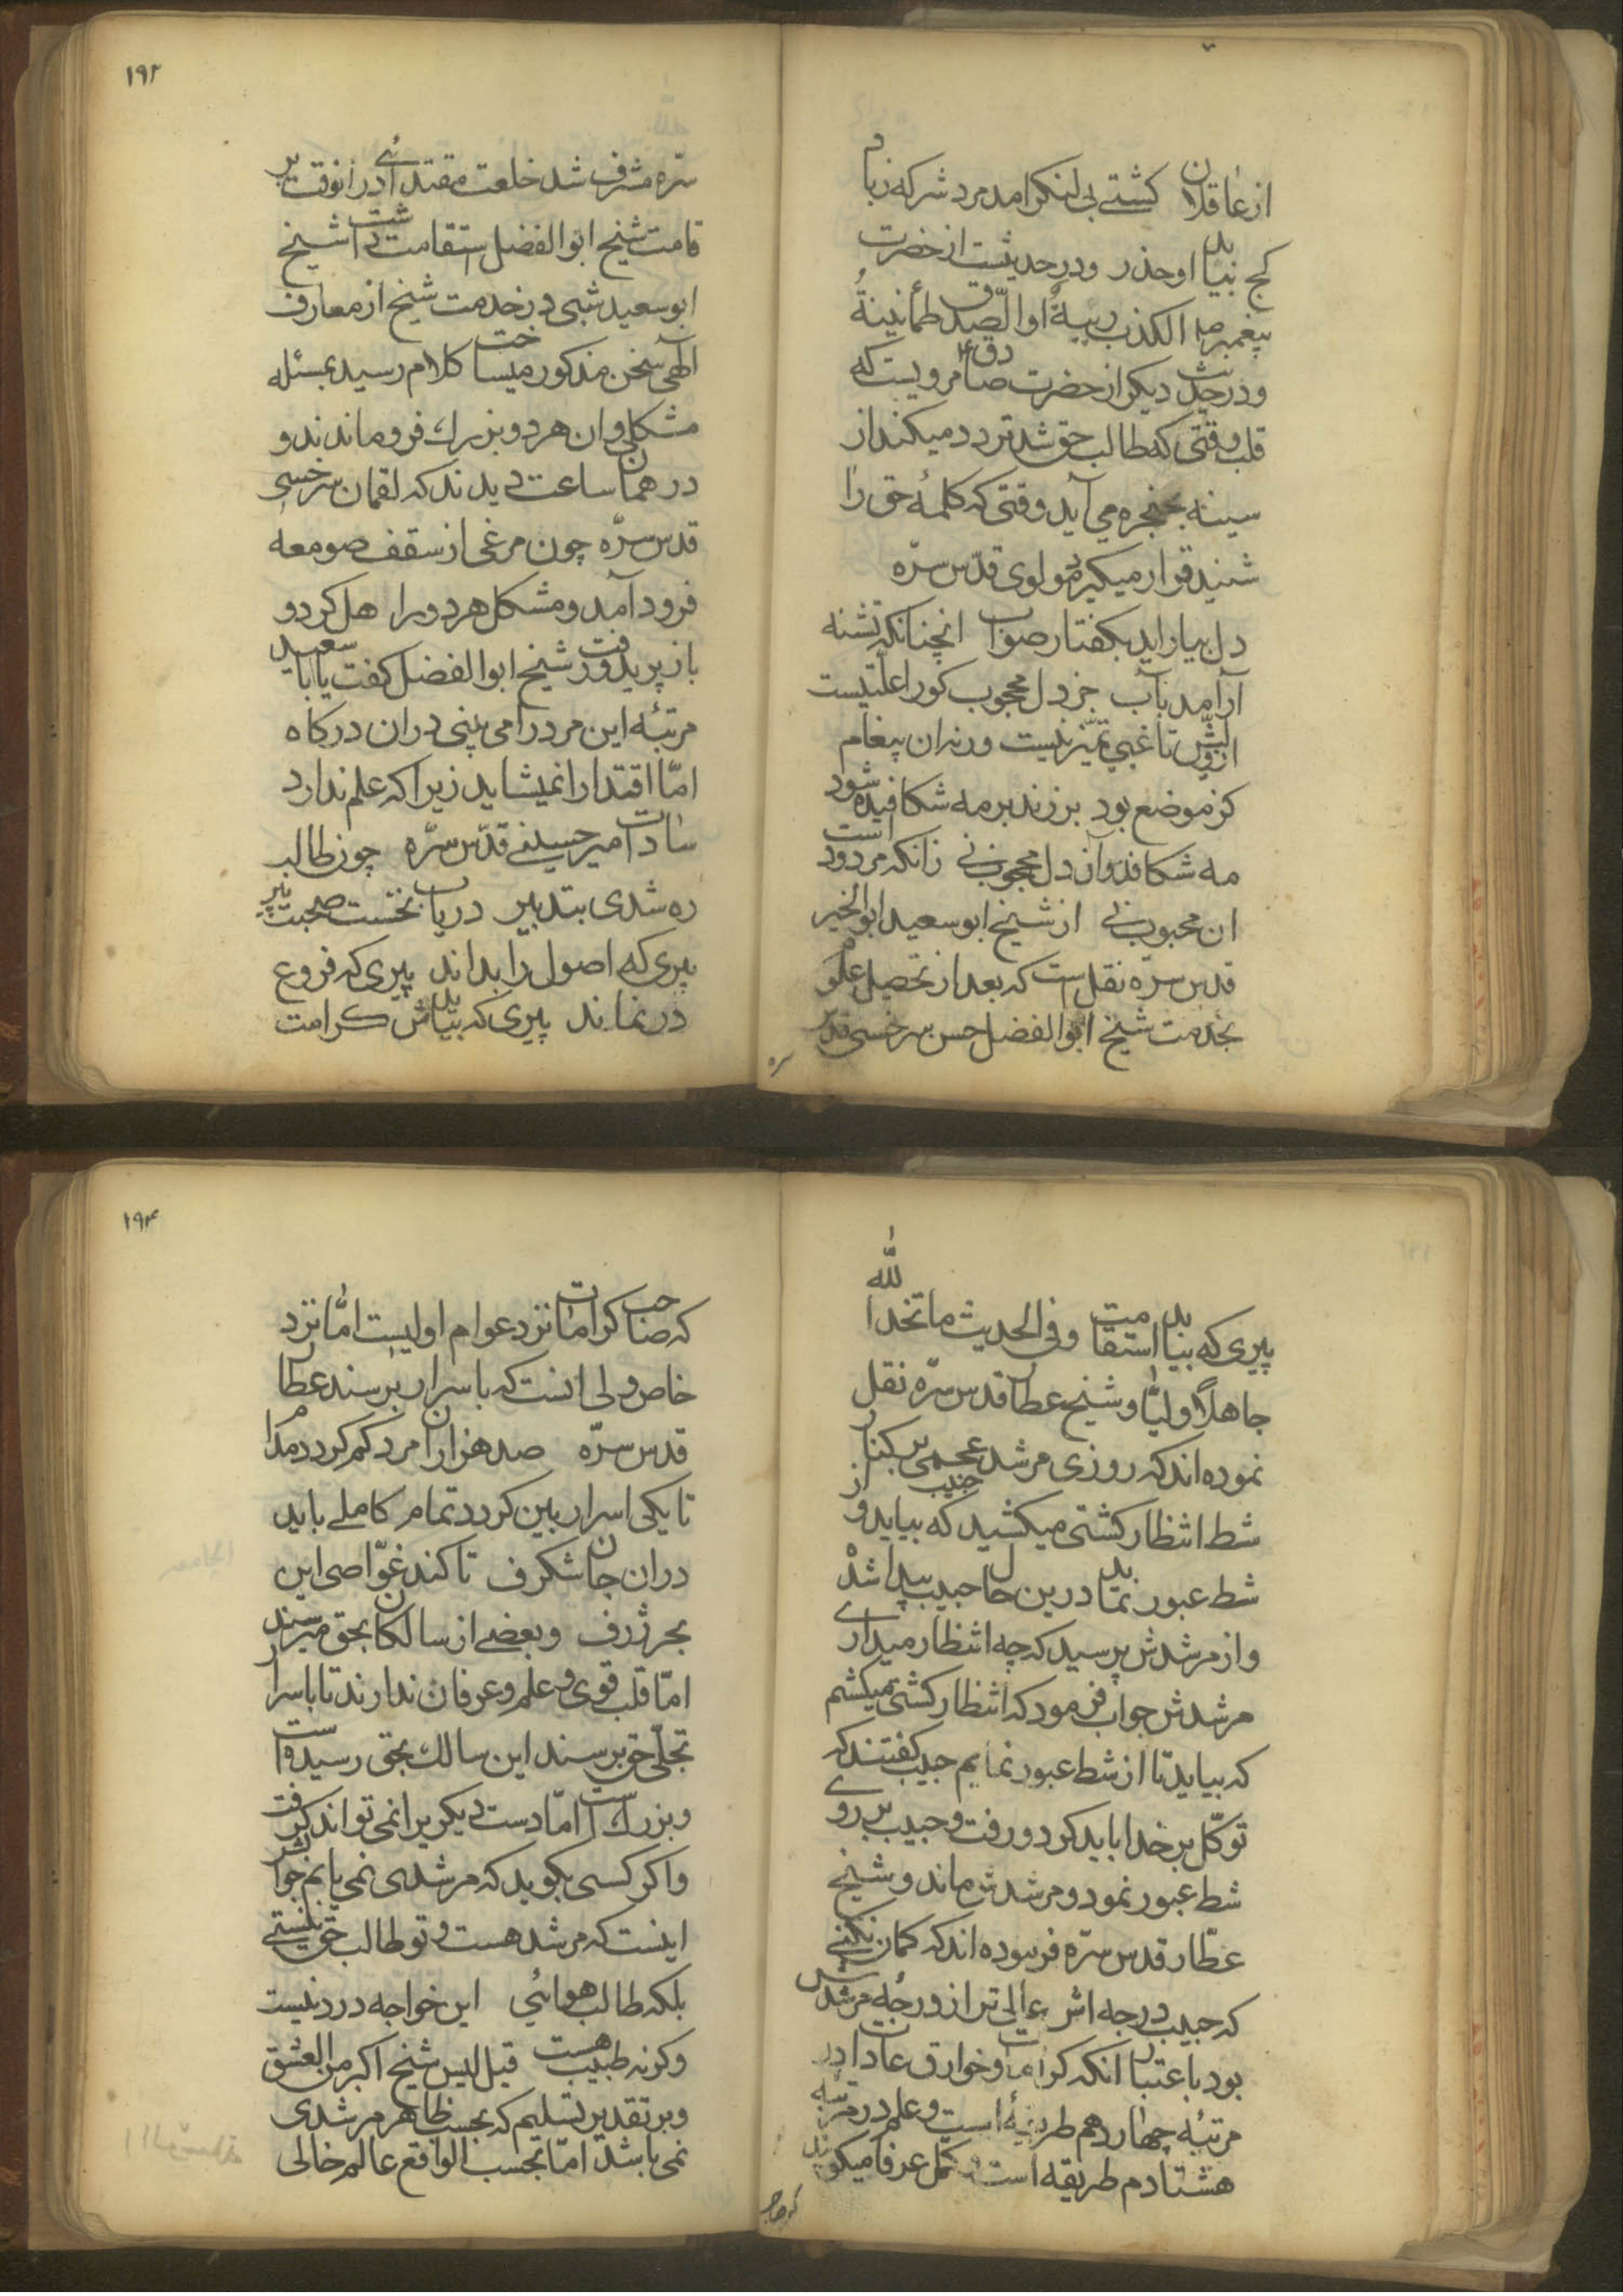 از عاقلان کشتے بی لنکر امد مرد شر که زباد
کج نیابد او حذر ودر حدیثست از حضرت
پیغمبر الکذب ریبةٌ او الصّدق طمأنینةٌ
ودر حدیث دیکر از حضرت صادق مرویست که
قلب وقتی که طالب حق شد تردد میکند از
سینه بحنجره می آید وقتی که کلمهٔ حق را
شنید قرار میکیرد مولوی قدّس سرّه
دل بیاراید بکفتار صواب انچنانکه تشنه
آرامد بآب جز دل محجوب کورا علّتیست
از نبیّش تا غبی تمیز نیست ورنه ان پیغام
کز موضع بود بر زند بر مه شکافیده شود
مه شکافد وآن دل محجوب نی زانکه مردود است
ان محبوب نی از شیخ ابوسعید ابوالخیر
قدس سرّه نقل است که بعد از تحصیل علوم
بخدمت شیخ ابوالفضل حسن سرخسی قدّس
سره
۱۹۳
سرّه مشرف شد خلعت مقتدائے در انوقت بر
قامت شیخ ابوالفضل استقامت داشت شیخ
ابوسعید شبی در خدمت شیخ از معارف
الٓهی سخن مذکور میساخت کلام رسید بمسئله
مشکلی وان هر دو بزرك فرو ماندند و
در همان ساعت دیدند که لقمان سرخسی
قدس سرّه چون مرغی از سقف صومعه
فرود آمد ومشکل هر دو را هل کرد و
باز پرید ورفت شیخ ابوالفضل کفت یا باسعید
مرتبهٔ این مرد را می بینی در ان درکاه
امّا اقتدا را نمیشاید زیرا که علم ندارد
سادات امیر حسینے قدّس سرّه چون طالب
ره شدی بتدبیر دریاب نخست صحبت پیر
پیری که اصول را بداند پیری که فروع
در نماند پیری که نیابدش کرامت
پیری که بیابد استقامت وفی الحدیث ما اتّخذ اللّٰه
جاهلاً ولیّا وشیخ عطار قدس سرّه نقل
نموده اند که روزی مرشد حبیب عجمی بر کنار
شط انتظار کشتی میکشید که بیاید و از
شط عبور نماید درین حال حبیب پیدا شدْ
واز مرشدش پرسید که چه انتظار میداری
مرشدش جواب فرمود که انتظار کشتی میکشم
که بیاید تا از شط عبور نمایم حبیب کفتند که
توکّل بر خدا باید کرد ورفت وحبیب بر روی
شط عبور نمود ومرشدش ماند وشیخ
عطّار قدس سرّه فرموده اند که کمان نکنے
که حبیب درجه اش عالی تر از درجهٔ مرشدش
بود باعتبار انکه کرامات وخوارق عادات در
مرتبهٔ چهاردهم طریقهٔ است وعلم در مرتبه
هشتادم طریقه است کمّل عرفا میکویند
که صاحب
۱۹۴
که صاحب کرامات نزد عوام اولیست امّا نزد
خاص ولی انست که باسرار برسند عطار
قدس سرّه صد هزاران مرد کم کردد مدام
تا یکی اسرار بین کردد تمام کاملے باید
در ان جان شکرف تا کند غوّاصی این
بحر ژرف وبعضے از سالکان بحق میرسند
امّا قلب قوی وعلم وعرفان ندارند تا باسرار
تجلّی حق برسند این سالك بحق رسیده است
وبزرك است امّا دست دیکریرا نمی تواند کرفت
واکر کسی بکوید که مرشدی نمی یابم جوابش
اینست که مرشد هست وتو طالب حق نیستے
بلکه طالب هوائی این خواجه درد نیست
وکرنه طبیب هست قیل لیس شیخ اکبر من العشق
وبر تقدیر تسلیم که بحسب ظاهر مرشدی
نمی باشد امّا بحسب الواقع عالم خالی